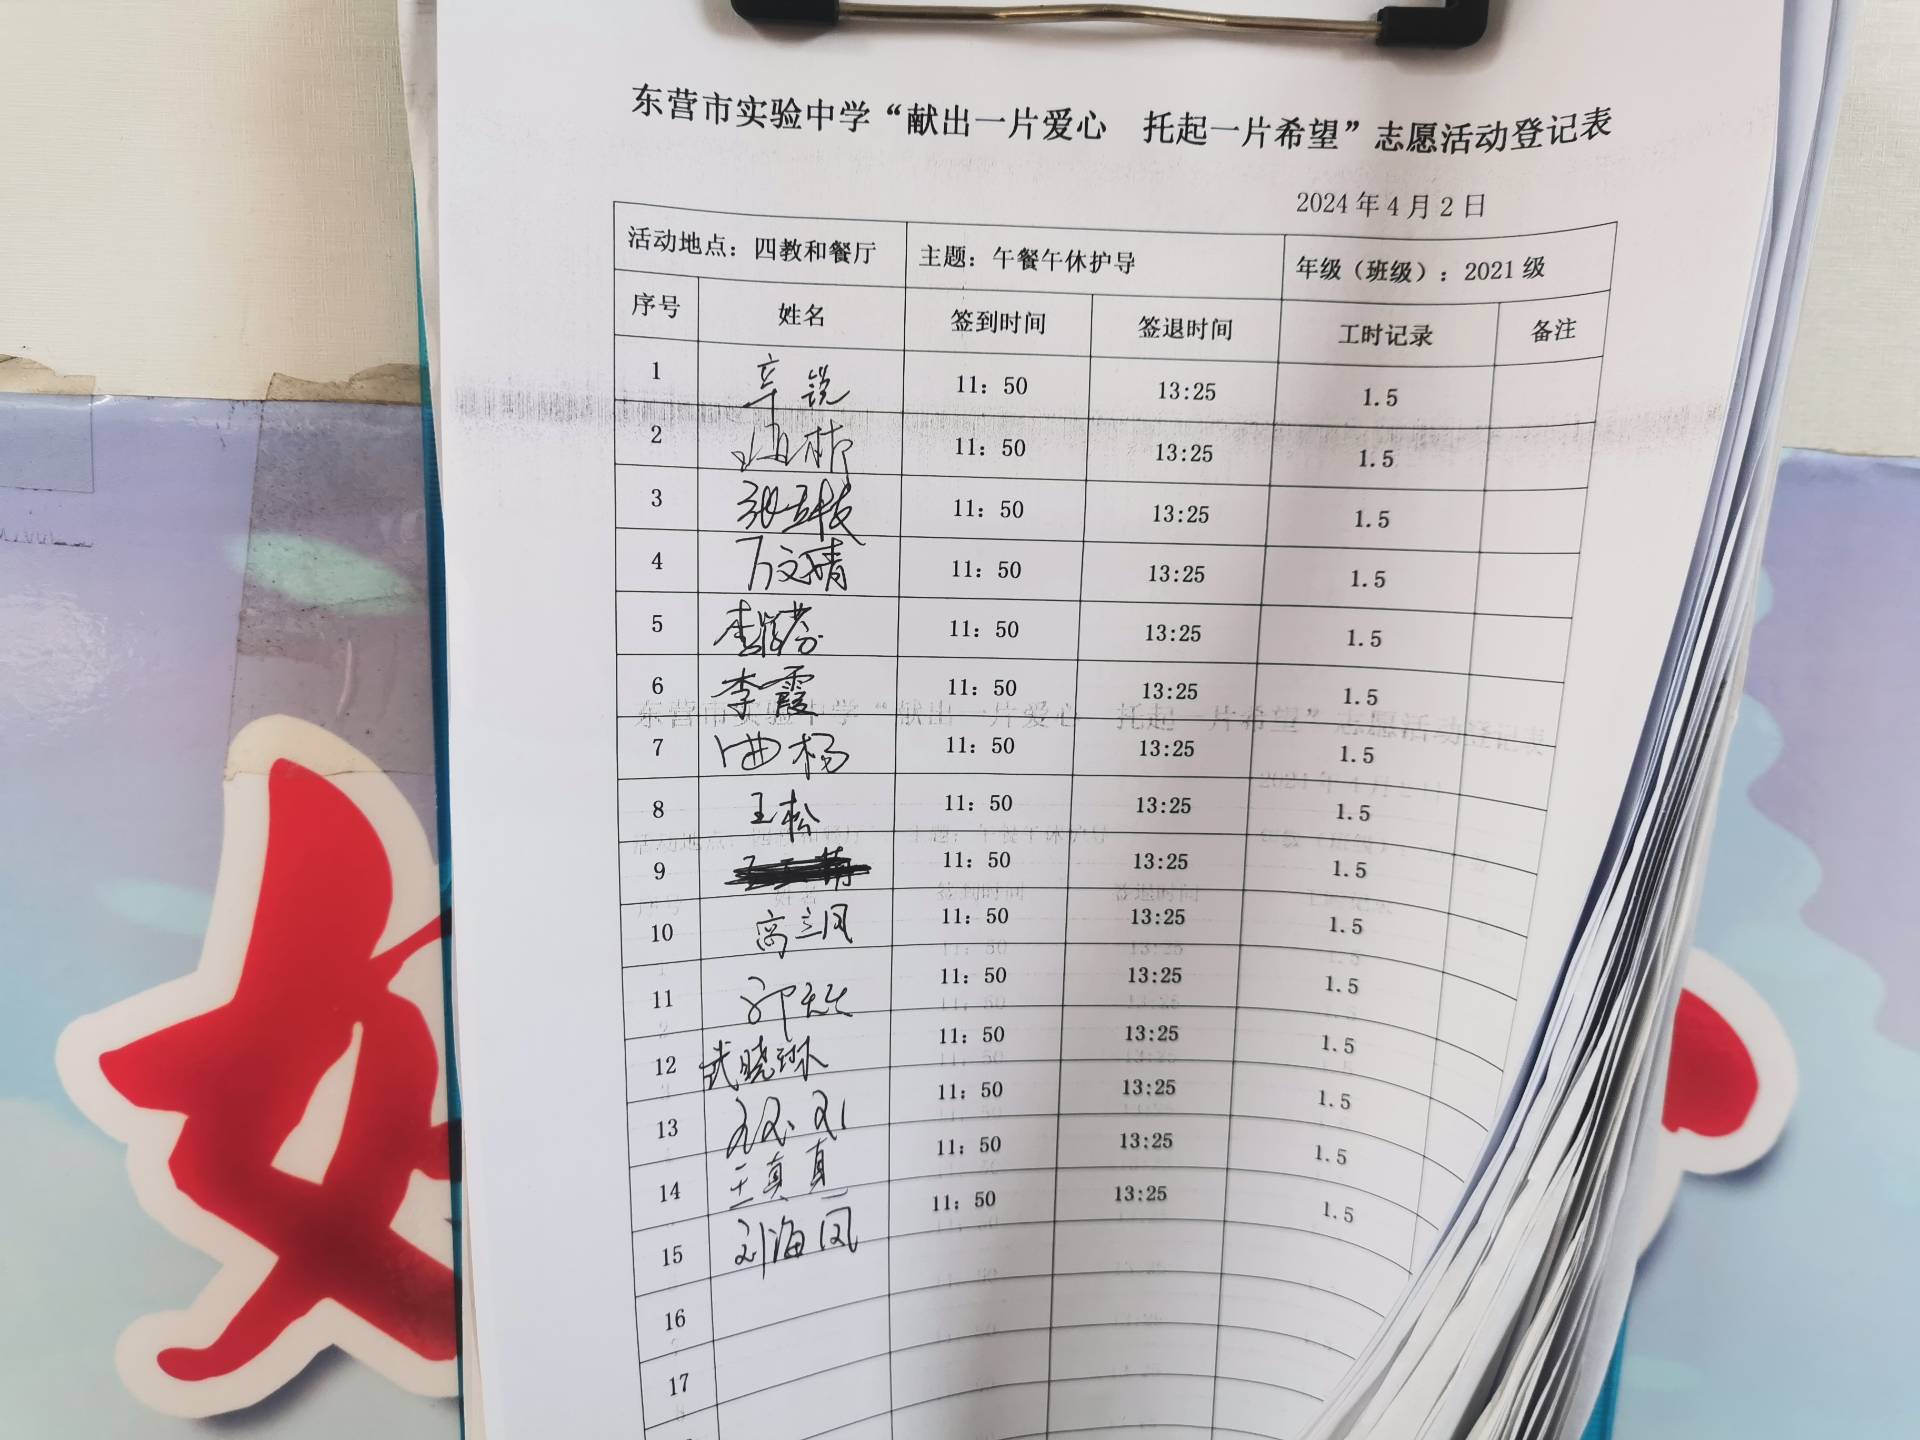 东营市实验中学“献出一片爱心 托起一片希望”志愿活动登记表
2024年4月2日
活动地点：四教和餐厅 主题：午餐午休护导 年级（班级）：2021级
序号 姓名 签到时间 签退时间 工时记录 备注
1 辛锐 11：50 13:25 1.5
2 11：50 13:25 1.5
3 张玉枝 11：50 13:25 1.5
4 万文晴 11：50 13:25 1.5
5 李 11：50 13:25 1.5
6 李霞 11：50 13:25 1.5
7 曲杨 11：50 13:25 1.5
8 王松 11：50 13:25 1.5
9 11：50 13:25 1.5
10 高立凤 11：50 13:25 1.5
11 11：50 13:25 1.5
12 武晓琳 11：50 13:25 1.5
13 11：50 13:25 1.5
14 王真真 11：50 13:25 1.5
15 刘海凤 11：50 13:25 1.5
16
17